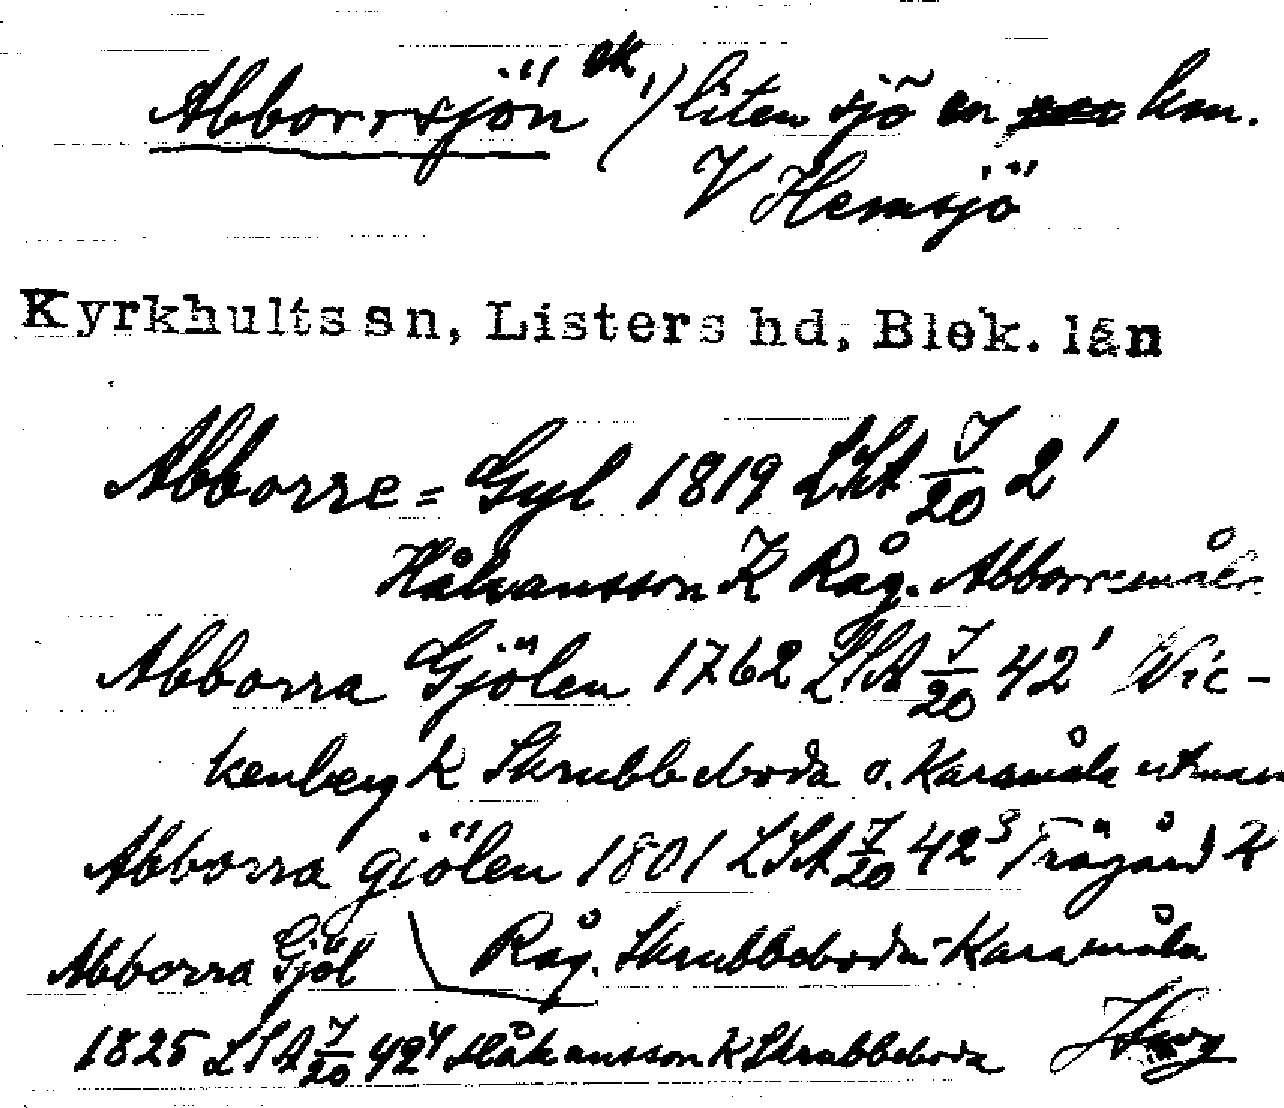 Abborrsjön ek, liten sjö en km.
V Hemsjö
Kyrkhults sn, Listers hd, Blek. län
Abborre = Gyl 1819 LSA 7/20 2¹
Håkansson K Råg. Abborremåla
Abborra Gjölen 1762 LSA 7/20 42¹ Wic-
kenberg K Skrubbeboda o. Karamåla utmar
Abborra gjölen 1801 LSA 7/20 42³ Trägård K
Råg. Skrubbeboda-Karamåla
Abborra Gjöl
1825 LSA 7/20 42⁴ Håkansson K Skrubbeboda